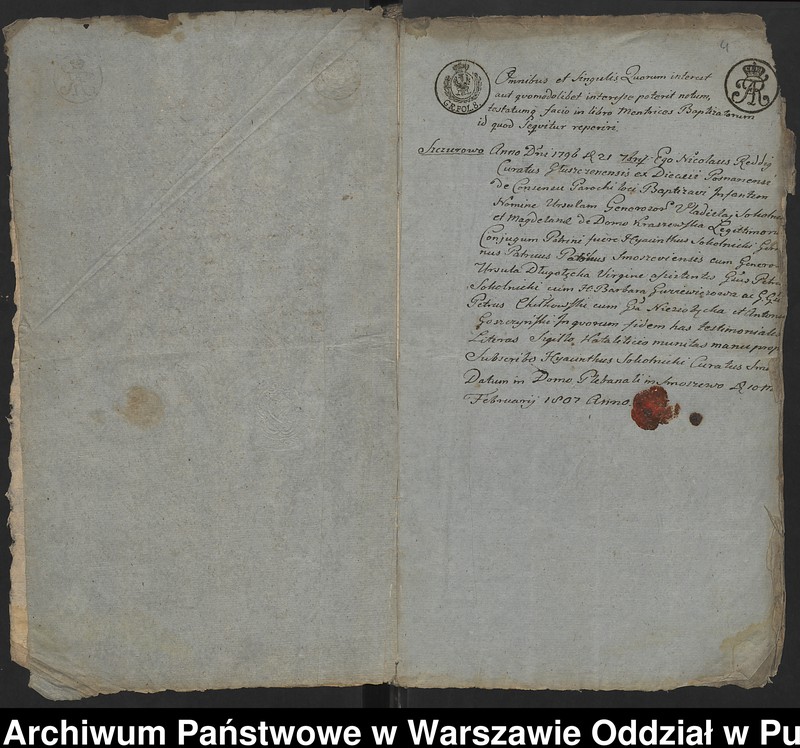 4
G&POLS.
FAR
Omnibus et Singulis Quorum interest
aut quomodolibet interesse poterit notum,
testatumq facio in libro Mentrices Baptizatorum
id quod Sequitur reperiri.
Szczurowo Anno Dni 1796 21 7bris Ego Nicolaus
Curatus Głuszczonensis ex Diecesi Posnaniensi
de Consensu Parochi loci Baptizavi Infantem
Nomine Ursulam Generosor Vladislai Sokolnic
et Magdelanæ de Domo Kraszewska Legittimoru
Conjugum Patrini fuere Hyacinthus Sokolnicki
nus Patruus Patrinus Smoszeviensis cum Genero
Ursula Długołęcka Virgine asistentes Petrus
Sokolnicki cum H. Barbara ac G.G
Petrus Chełkowski cum Niezołęcka et Antoni
Goszczyński In quorum fidem has testimoniales
Literas Sigillo Nataliticio munitas manu prop
Subscribo Hyacinthus Sokolnicki Curatus Smo
Datum in Domo Plebanali in Smoszewo 10
Februarij 1807 Anno
Archiwum Państwowe w Warszawie Oddział w Pu